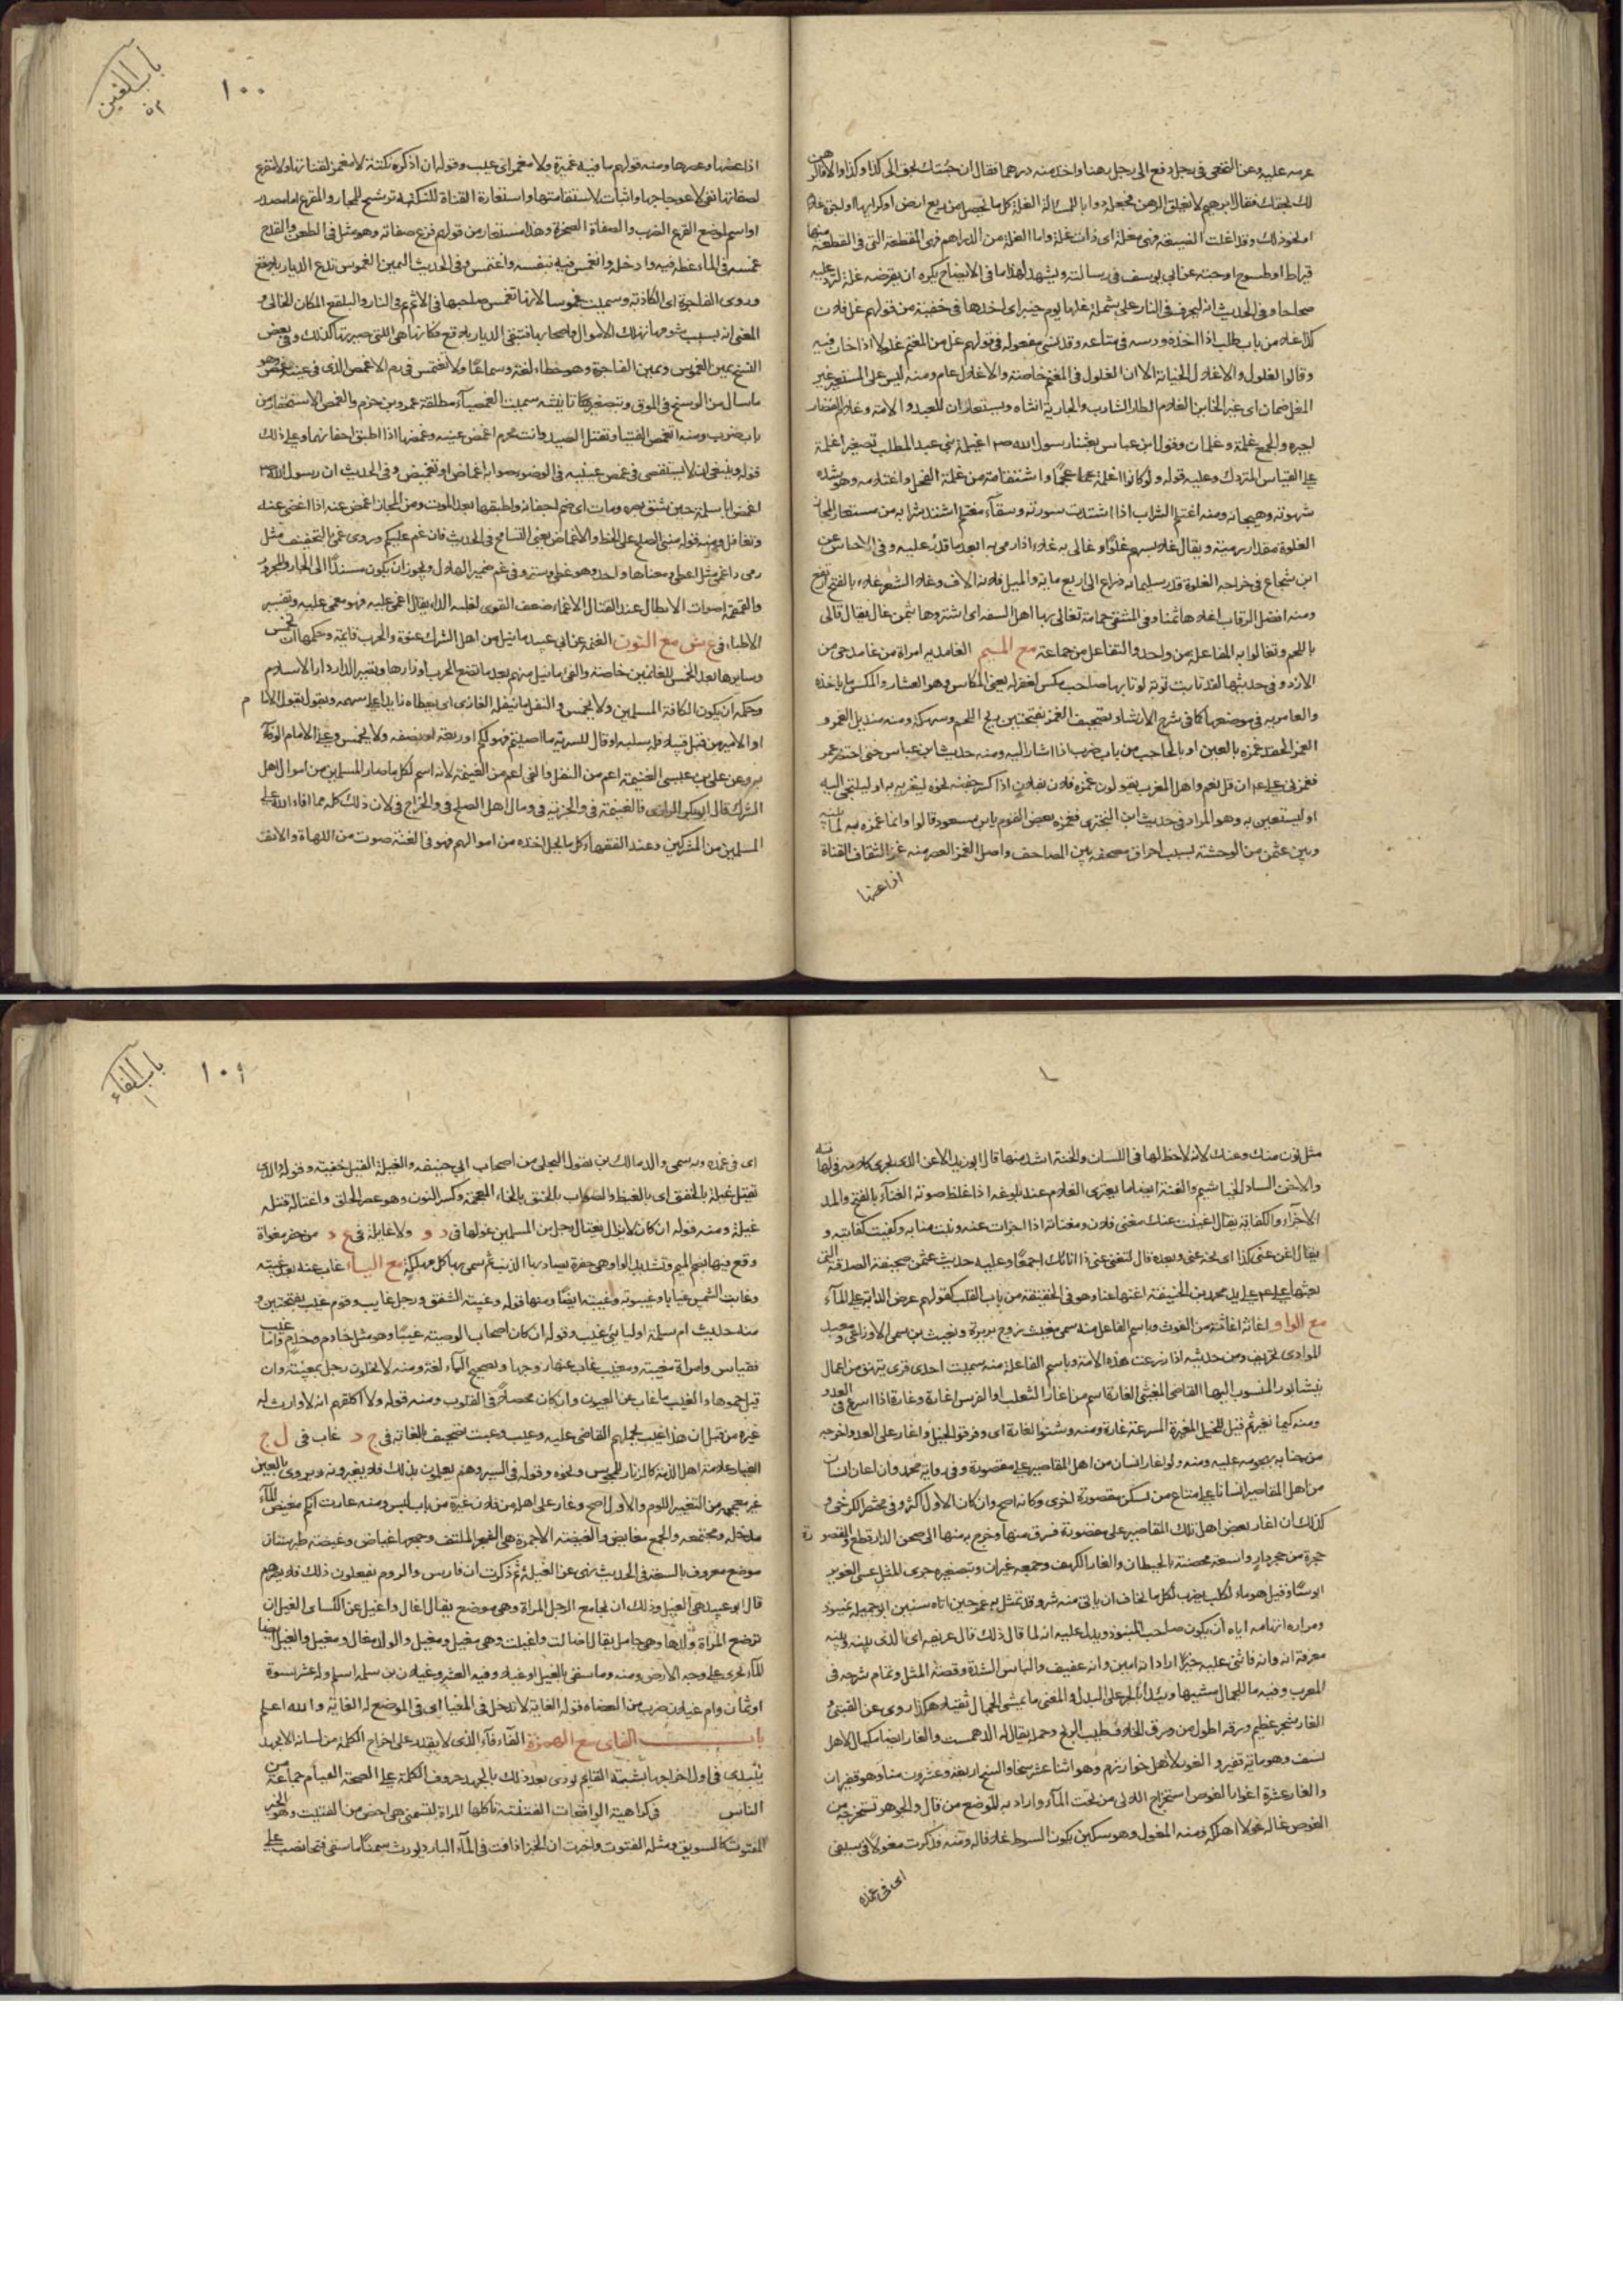 عرسه عليه وعن النخعى فى رجل دفع الى رجل رهنا واخذ منه درهما فقال ان جئتك بحقك الى كذا وكذا والا فالرهن
لك بحقك فقال ابرهيم لا يغلق الرهن فجعله جوابا للمسألة الغلة كل ما يحصل من ريع ارض او كرائها او اجرة غلام
او نحو ذلك وقد اغلت الضيعة فهى مغلة اى ذات غلة واما الغلة من الدراهم فهى المقطعة التى فى القطعة منها
قيراط او طسوج او حبة عن ابى يوسف فى رسالته ويشهد لهذا ما فى الايضاح يكره ان يقرضه غلة ليرد عليه
صحاحا وفى الحديث انه ليجرف فى النار على شملة غلها يوم خيبر اى اخذها فى خفية من قولهم غل فلان
كذا غلا من باب طلب اذا اخذه ودسه فى متاعه وقد نسى مفعوله فى قولهم غل من المغنم غلولا اذا خان فيه
وقالوا الغلول والاغلال الخيانة الا ان الغلول فى المغنم خاصة والاغلال عام ومنه ليس على المستعير غير
المغل ضمان اى غير الخاين الغلام الطار الشارب والجارية انثاه ويستعاران للعبد والامة وغلام القصار
اجيره والجمع غلمة وغلمان وقول ابن عباس بعثنا رسول الله صم اغيلمة بنى عبد المطلب تصغير اغلمة
على القياس المتروك وعليه قوله ولو كانوا اغلمة عجما واشتقاقه من غلمة الفحل واغتلامه وهو شدة
شهوته وهيجانه ومنه اغتلم الشراب اذا اشتدت سورته وسقاء مغتلم اشتد شرابه من مستعار المجاز
الغلوة مقدار رمية ويقال غلا بسهمه غلوا وغالى به غلاء اذا رمى به ابعد ما قدر عليه وفى الاجناس عن
ابن شجاع فى خراجه الغلوة قدر ثلثمائة ذراع الى اربع ماية والميل ثلاثة الاف وغلا السعر غلاء بالفتح ارتفع
ومنه افضل الرقاب اغلاها ثمنا وفى المنتقى حمامة تغالى بها اهل السفه اى اشتروها بثمن غال يقال غالى
باللحم وتغالوا به المفاعلة من واحد والتفاعل من جماعة مع الميم الغامدية امراة من غامد حى من
الازد وفى حديثها لقد تابت توبة لو تابها صاحب مكس لغفر له يعنى المكاس وهو العشار والمكس ما ياخذه
والعامرية فى موضعها كما فى شرح الارشاد تصحيف الغمر بفتحتين ريح اللحم وسهكه ومنه منديل الغمر و
الغمر الحقد غمزه بالعين او بالحاجب من باب ضرب اذا اشار اليه ومنه حديث ابن عباس حتى احتضر عمر
فغمزنى على عم ان قل نعم واهل المغرب يقولون غمزه فلان بفلان اذا كسر جفنه نحوه ليغريه به او ليلتجى اليه
او ليستعين به وهو المراد فى حديث ابن البخترى فغمزه بعض القوم بابن مسعود قالوا وانما غمزه به لما بينه
وبين عثمن من الوحشة بسبب احراق مصحفه بين المصاحف واصل الغمز العصر منه غمز الثقاف القناة
اذا عضها
١٠٠
باب الغين
اذا عضها وعصرها ومنه قولهم ما فيه غميزة ولا مغمز اى عيب وقوله ان اذكره نكتة لا مغمز لقناتها ولا مقرع
لصفاتها نفى لاعوجاجها واثبات لاستقامتها واستعارة القناة للنكتة ترشيح للمجاز والمقرع اما مصدر
او اسم لموضع القرع الضرب والصفاة الصخرة وهذا مستعار من قولهم قرع صفاته وهو مثل فى الطعن والقدح
غمسه فى الماء غطه فيه وادخله وانغمس فيه بنفسه واغتمس وفى الحديث اليمين الغموس تدع الديار بلاقع
وروى الفاجرة اى الكاذبة وسميت غموسا لانها تغمس صاحبها فى الاثم ثم فى النار والبلقع المكان الخالى و
المعنى انه بسبب شومها تهلك الاموال واصحابها فتبقى الديار بلاقع فكانها هى التى صيرتها كذلك وفى بعض
النسخ يمين الغموس ويمين الفاجرة وهو خطاء لغة وسماعا ولا تغتمس فى الاغمص الذى فى عينه غمص وهو
ما سال من الوسخ فى الموق وبتصغير تانيثه سميت الغميصاء مطلقة عمرو بن حزم والغمص الاستحقار من
باب ضرب ومنه اتغمص الفتيا وتقتل الصيد وانت محرم اغمض عينيه وغمضها اذا اطبق اجفانهما وعلى ذلك
قوله وينبغى ان لا يستقصى فى غمض عينيه فى الوضوء صوابه اغماض او تغميض وفى الحديث ان رسول الله صم
اغمض ابا سلمة حين شق بصره ومات اى ضم اجفانه واطبقها بعد الموت ومن المجاز اغمض عنه اذا اغضى عنه
وتغافل ومنه قوله مبنى الصلح على الحط والاغماض يعنى التسامح فى الحديث فان غم عليكم وروى غمى بالتخفيف مثل
رمى واغمى مثل اعطى ومعناها واحد وهو غطى وستر وفى غم ضمير الهلال ويجوز ان يكون مسندا الى الجار والمجرور
والغمغمة اصوات الابطال عند القتال الاغماء ضعف القوى لغلبة الداء يقال اغمى عليه فهو مغمى عليه وتفسير
الاطباء فى غ ش مع النون الغنيمة عن ابى عبيد ما نيل من اهل الشرك عنوة والحرب قايمة وحكمها ان تخمس
وسايرها بعد الخمس للغانمين خاصة والفئ ما نيل منهم بعد ما تضع الحرب اوزارها وتصير الدار دار الاسلام
وحكمه ان يكون لكافة المسلمين ولا يخمس والنفل ما ينفله الغازى اى يعطاه زايدا على سهمه وهو ان يقول الامام
او الامير من قتل قتيلا فله سلبه او قال للسرية ما اصبتم فهو لكم او ربعه او نصفه ولا يخمس وعلى الامام الوفاء
به وعن على بن عيسى الغنيمة اعم من النفل والفئ اعم من الغنيمة لانه اسم لكل ما صار للمسلمين من اموال اهل
الشرك قال ابو بكر الرازى فالغنيمة فئ والجزية فئ ومال اهل الصلح فئ والخراج فئ لان ذلك كله مما افاء الله على
المسلمين من المشركين وعند الفقهاء كل ما يحل اخذه من اموالهم فهو فئ الغنة صوت من اللهاة والانف
مثل نون منك وعنك لانه لا حظ لها فى اللسان والخنة اشد منها قال ابو زيد الاغن الذى يجرى كلامه فى لهاته
والاخن الساد الخياشيم والغنة ايضا ما يعترى الغلام عند بلوغه اذا غلظ صوته الغناء بالفتح والمد
الاجزاء والكفاية يقال اغنيت عنك مغنى فلان ومغناته اذا اجزات عنه ونبت منابه وكفيت كفايته و
يقال اغن عنى كذا اى نحه عنى وبعده قال لتغنى عنى ذا انائك اجمعا وعليه حديث عثمن صحيفة الصدقة التى
بعثها على عم على يد محمد بن الحنيفة اغنها عنا وهو فى الحقيقة من باب القلب كقولهم عرض الدابة على الماء
مع الواو اغاثه اغاثة من الغوث وباسم الفاعل منه سمى مغيث زوج بريرة ومغيث بن سمى الاوزاعى و
الموادى تحريف ومن حديثه اذا زرعت هذه الامة وباسم الفاعلة منه سميت احدى قرى بيهق من اعمال
نيشابور المنسوب اليها القاضى المغيثى الغارة اسم من اغار الثعلب او الفرس اغارة وغارة اذا اسرع فى العدو
ومنه كيما نغير ثم قيل للخيل المغيرة المسرعة غارة ومنه وشنوا الغارة اى وفرقوا الخيل واغار على العدو اخرجه
من جنابه بهجومه عليه ومنه ولو اغار انسان من اهل المقاصير على مقصورة وفى رواية محمد وان اعان انسان
من اهل المقاصير انسانا على متاع من يسكن مقصورة اخرى وكانه اصح وان كان الاول اكثر وفى مختصر الكرخى و
كذلك ان اغار بعض اهل تلك المقاصير على مقصورة فسرق منها وخرج به منها الى صحن الدار قطع والمقصورة
حجرة من حجر دار واسعة محصنة بالحيطان والغار الكهف وجمعه غيران وبتصغيره جرى المثل عسى الغوير
ابوسا وقيل هو ماء لكلب يضرب لكل ما يخاف ان ياتى منه شر وقد تمثل به عمر حين اتاه سنين ابو جميلة بمنبوذ
ومراده اتهامه اياه ان يكون صاحب المنبوذ ويدل عليه انه لما قال ذلك قال عريفه اى الذى بينه وبينه
معرفة انه وانه فاثنى عليه خيرا اراد انه امين وانه عفيف والباس الشدة وقصة المثل وتمام شرحه فى
المعرب وفيه ما للجمال مشيها وئيدا بالجر على البدل والمعنى ما بمشى الجمال ثقيلا هكذا روى عن القتبى و
الغار شجر عظيم ورقه اطول من ورق الخلاف طيب الريح وحمله يقال له الدهمست والغار ايضا مكيال لاهل
نسف وهو ماية قفيز والغور لاهل خوارزم وهو اثنا عشر سخا والسخ اربعة وعشرون منا وهو قفيزان
والغار عشرة اغوار الغوص استخراج اللآلى من تحت الماء واراد به الموضع من قال والجوهر تستخرجه من
الغوص غاله غولا اهلكه ومنه المغول وهو سكين يكون السوط غلافا له ومنه فذكرت مغولا فى سيفى
اى فى غمده
١٠١
باب الفاء
١
اى فى غمده وبه سمى والد مالك بن مغول البجلى من اصحاب ابى حنيفه والغيلة القتل خفية وقوله والذى
تقتل غيلة بالخنق اى بالغيظ والصواب بالخنق بالخاء المعجمة وكسر النون وهو عصر الحلق واغتاله قتله
غيلة ومنه قوله ان كان لا يزال يغتال رجل من المسلمين غولها فى د و ولا غايلة فى ع د من حفر مغواة
وقع فيها بضم الميم وتشديد الواو وهى حفرة يصاد بها الذئب ثم سمى بها كل مهلكة مع الياء غاب عنه بعد غيبة
وغابت الشمس غيابا وغيبوبة وغيبة ايضا ومنها قوله وغيبة الشفق ورجل غايب وقوم غيب بفتحتين و
منه حديث ام سلمة اوليائى غيب وقوله ان كان اصحاب الوصية غيبا وهو مثل خادم وخدم واما غيب
فقياس وامراة مغيبة ومغيب غاب عنها زوجها وتصحيح الياء لغة ومنه لا يخلون رجل بمغيبة وان
قيل حموها والغيب ما غاب عن العيون وان كان محصلا فى القلوب ومنه قوله ولا اكلفهم انه لا وارث له
غيره من قبل ان هذا غيب يحملهم القاضى عليه وعيب وعبث تصحيف الغابة فى ج د غاب فى ل ج
الغيار علامة اهل الذمة كالزنار للمجوس ونحوه وقوله فى السير وهم يعلمون بذلك فلا يغيرونه ويروى بالعين
غير معجمة من التعيير اللوم والاول اصح وغار على اهله من فلان غيرة من باب لبس ومنه غارت امكم مغيض الماء
مدخله ومجتمعه والجمع مغايض والغيضة الاجمة وهى الشجر الملتف وجمعها غياض وغيضة طبرستان
موضع معروف بالسعة فى الحديث نهى عن الغيلة ثم ذكرت ان فارس والروم يفعلون ذلك فلا يضرهم
قال ابو عبيد هى الغيل وذلك ان يجامع الرجل المراة وهى مرضع يقال اغال واغيل عن الكسائى الغيل ان
ترضع المراة ولدها وهى حامل يقال اغالت واغيلت وهى مغيل ومغيل والولد مغال ومغيل والغيل ايضا
الماء يجرى على وجه الارض ومنه وما سقى بالغيل او غيلا وفيه العشر وغيلان بن سلمة اسلم وله عشر نسوة
او ثمان وام غيلان ضرب من العضاه قوله الغاية لا تدخل فى المغيا اى فى الموضع له الغاية والله اعلم
باب الفاء مع الهمزة الفأفاء الذى لا يقدر على اخراج الكلمة من لسانه الا بجهد
يبتدى فى اول اخراجها بشبه الفاء ثم يودى بعد ذلك بالجهد حروف الكلمة على الصحة الفيام جماعة من
الناس فى كراهية الواقعات الفتفتة تاكلها المراة لتسمن هى اخص من الفتيت وهو الخبز
المفتوت كالسويق ومثله الفتوت واخرت ان الخبز اذا فت فى الماء البارد يورث سمنا ما سقى فتحا نصب على